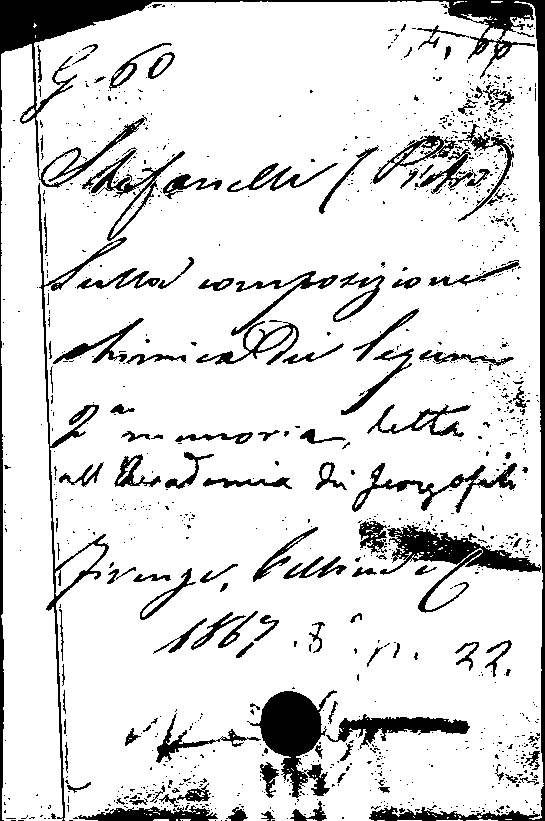 G-60
1, 4, 66
Stefanelli (Pietro)
Sulla composizione
chimica dei legumi
2ª memoria, letta
all'Accademia dei Georgofili
Firenze, Cellini e C
1867. 8°. p. 22.